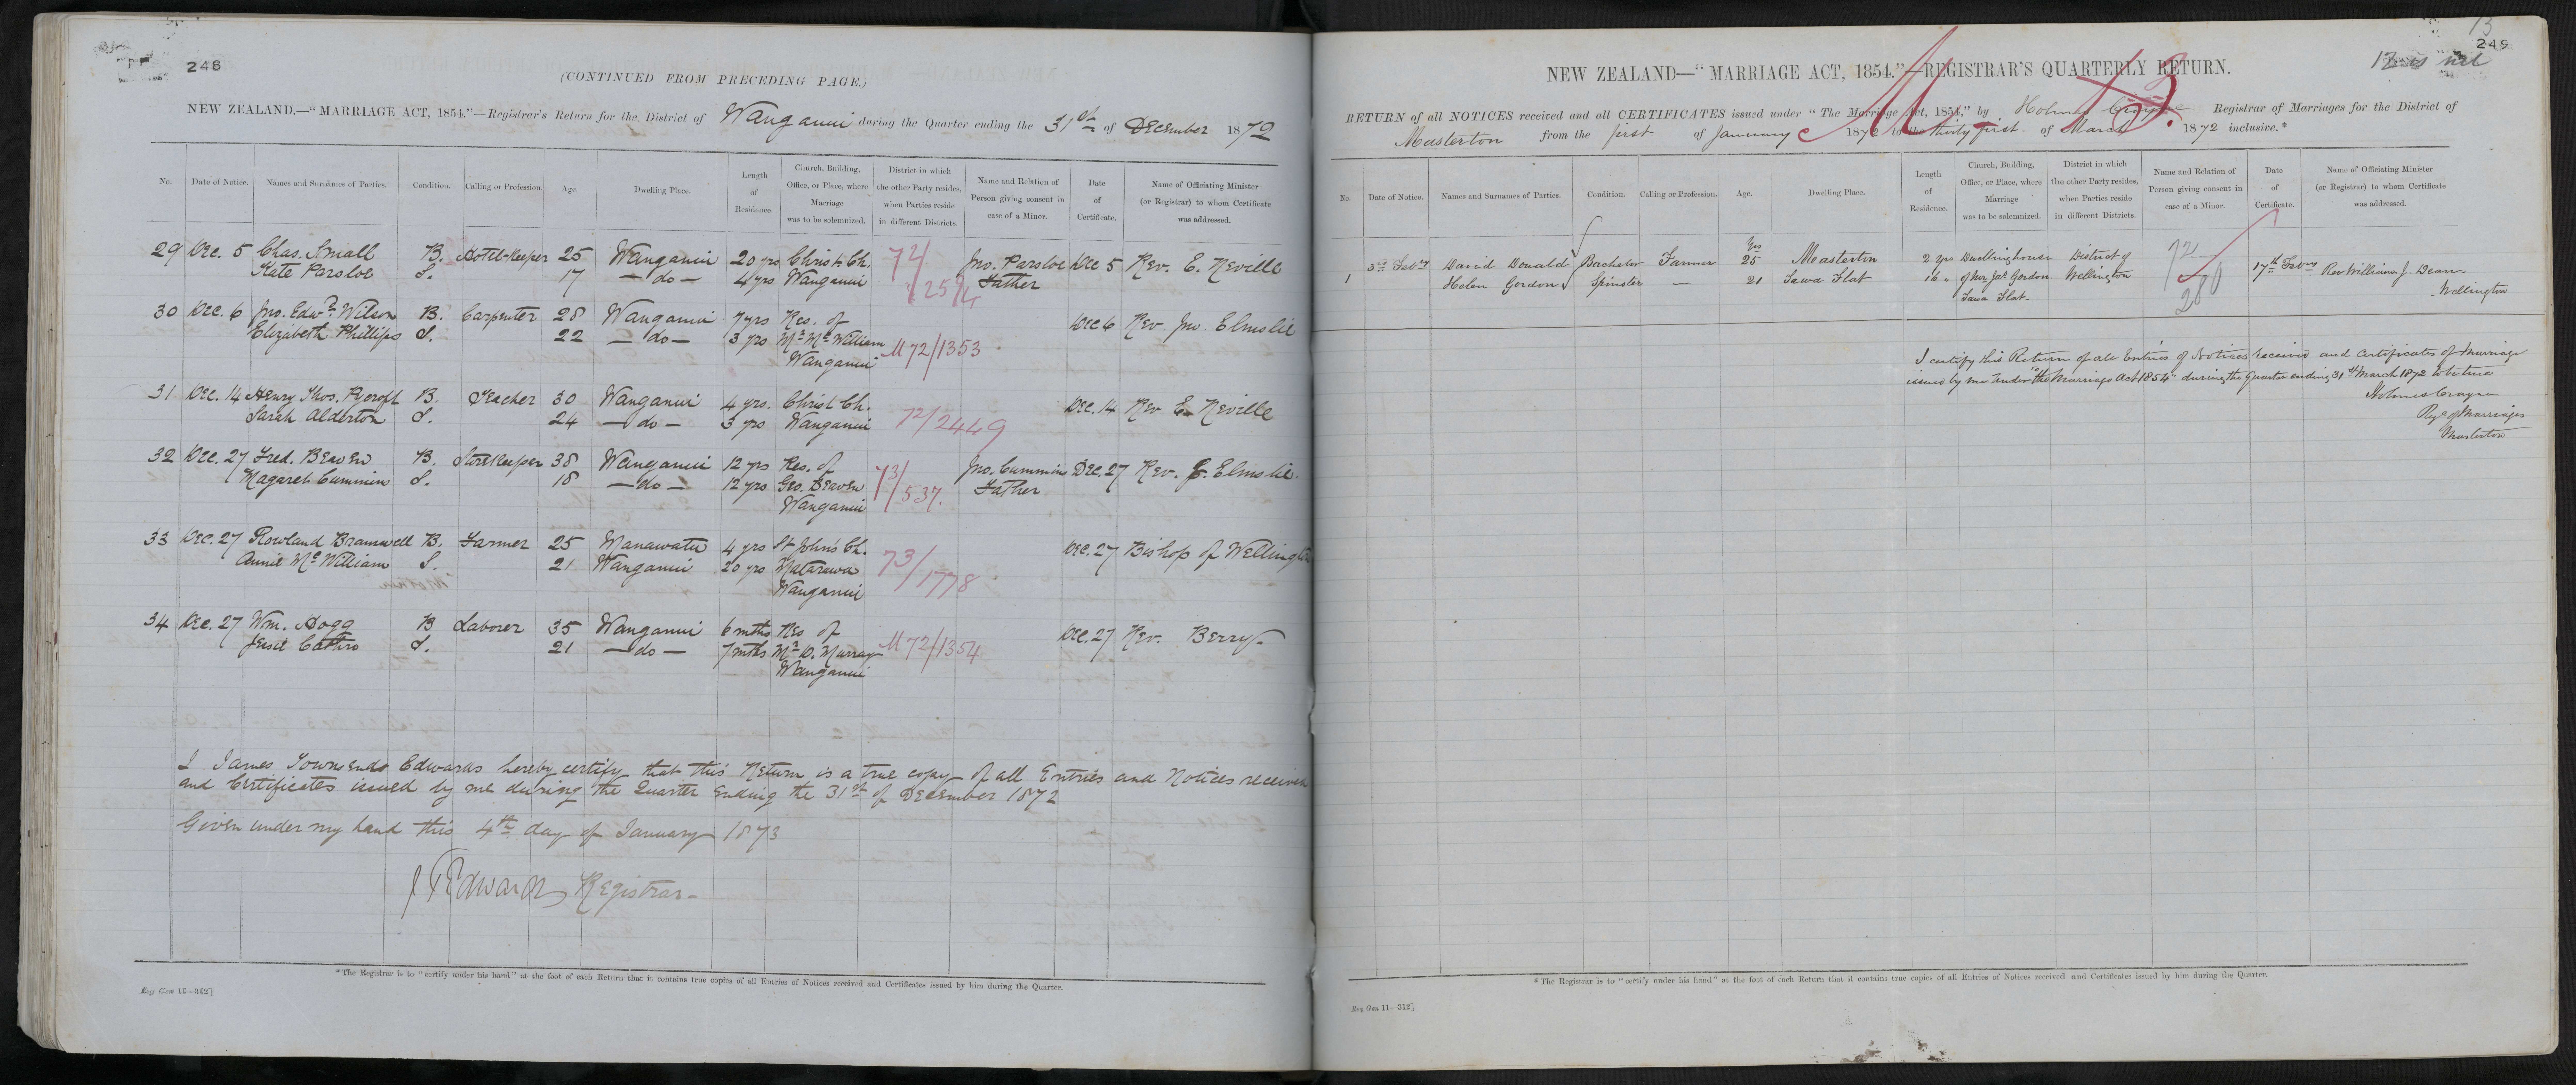 248
(CONTINUED FROM PRECEDING PAGE.)
NEW ZEALAND.—"MARRIAGE ACT, 1854."—Registrar's Return for the District of Wanganui during the Quarter ending the 31st of December 1872
No. Date of Notice. Names and Surnames of Parties. Condition. Calling or Profession. Age. Dwelling Place. Length of Residence. Church, Building, Office, or Place, where Marriage was to be solemnized. District in which the other Party resides, when Parties reside in different Districts. Name and Relation of Person giving consent in case of a Minor. Date of Certificate. Name of Officiating Minister (or Registrar) to whom Certificate was addressed.
29 Dec. 5 Chas. Small B. Hotel-Keeper 25 Wanganui 20 yrs Christ Ch. 72/ Jno. Parsloe Dec 5 Rev. E. Neville
Kate Parsloe S. 17 — do — 4 yrs Wanganui Father
30 Dec. 6 Jno. Edwd. Wilson B. Carpenter 28 Wanganui 7 yrs Res. of Dec 6 Rev. Jno. Elmslie
Elizabeth Phillips S. 22 — do — 3 yrs Mr. McWilliam M 72/1353
Wanganui
31 Dec. 14 Henry Thos. Rycroft B. Teacher 30 Wanganui 4 yrs. Christ Ch. Dec. 14 Rev E. Neville
Sarah Alderton S. 24 — do — 3 yrs Wanganui 72/2449
32 Dec. 27 Fred. Beaven B. Storekeeper 38 Wanganui 12 yrs Res. of 73/537. Jno. Cummins Dec. 27 Rev. J. Elmslie
Magaret Cummins S. 18 — do — 12 yrs Geo. Beaven Father
Wanganui
33 Dec. 27 Rowland Bramwell B. Farmer 25 Manawatu 4 yrs St John's Ch. Dec. 27 Bishop of Wellington
Annie McWilliam S. 21 Wanganui 20 yrs Matarawa 73/1778
Wanganui
34 Dec. 27 Wm. Hogg B Laborer 35 Wanganui 6 mths Res of Dec. 27 Rev. Berry
Jessie Cathro S. 21 — do — 7 mths Mr. D. Murray M 72/1354
Wanganui
I James Townsend Edwards hereby certify that this Return is a true copy of all Entries and Notices received
and Certificates issued by me during the Quarter Ending the 31st of December 1872
Given under my hand this 4th day of January 1873
J T Edwards Registrar
*The Registrar is to "certify under his hand" at the foot of each Return that it contains true copies of all Entries of Notices received and Certificates issued by him during the Quarter.
Reg Gen 11—312]
249
NEW ZEALAND—"MARRIAGE ACT, 1854."—REGISTRAR'S QUARTERLY RETURN.
RETURN of all NOTICES received and all CERTIFICATES issued under "The Marriage Act, 1854," by Registrar of Marriages for the District of
Masterton from the first of January 1872 to the thirty first of March 1872 inclusive.*
No. Date of Notice. Names and Surnames of Parties. Condition. Calling or Profession. Age. Dwelling Place. Length of Residence. Church, Building, Office, or Place, where Marriage was to be solemnized. District in which the other Party resides, when Parties reside in different Districts. Name and Relation of Person giving consent in case of a Minor. Date of Certificate. Name of Officiating Minister (or Registrar) to whom Certificate was addressed.
1 3rd Feby David Donald Bachelor Farmer Yrs 25 Masterton 2 yrs Dwellinghouse District of 72/280 17th Feby Rev William J. Dean
Helen Gordon Spinster — 21 Tawa Flat 16 " of Mr Jas Gordon Wellington Wellington
Tawa Flat
I certify this Return of all Entries of Notices received and Certificates of Marriage
issued by me under "the Marriage Act 1854" during the Quarter ending 31st March 1872 to be true
Regr of Marriages
Masterton
*The Registrar is to "certify under his hand" at the foot of each Return that it contains true copies of all Entries of Notices received and Certificates issued by him during the Quarter.
Reg Gen 11—312]